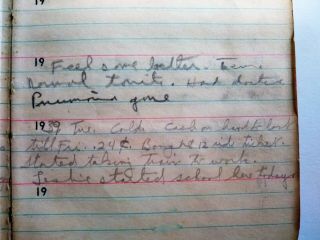 19
19 Feel some better. Tem.
normal tonite. Had doctor
Pneumonia gone
1939 Tue. Cold. Cash on hand to last
till Fri. .24¢. Bought 12 ride ticket.
Started taking train to work.
Leslie started school here today
19